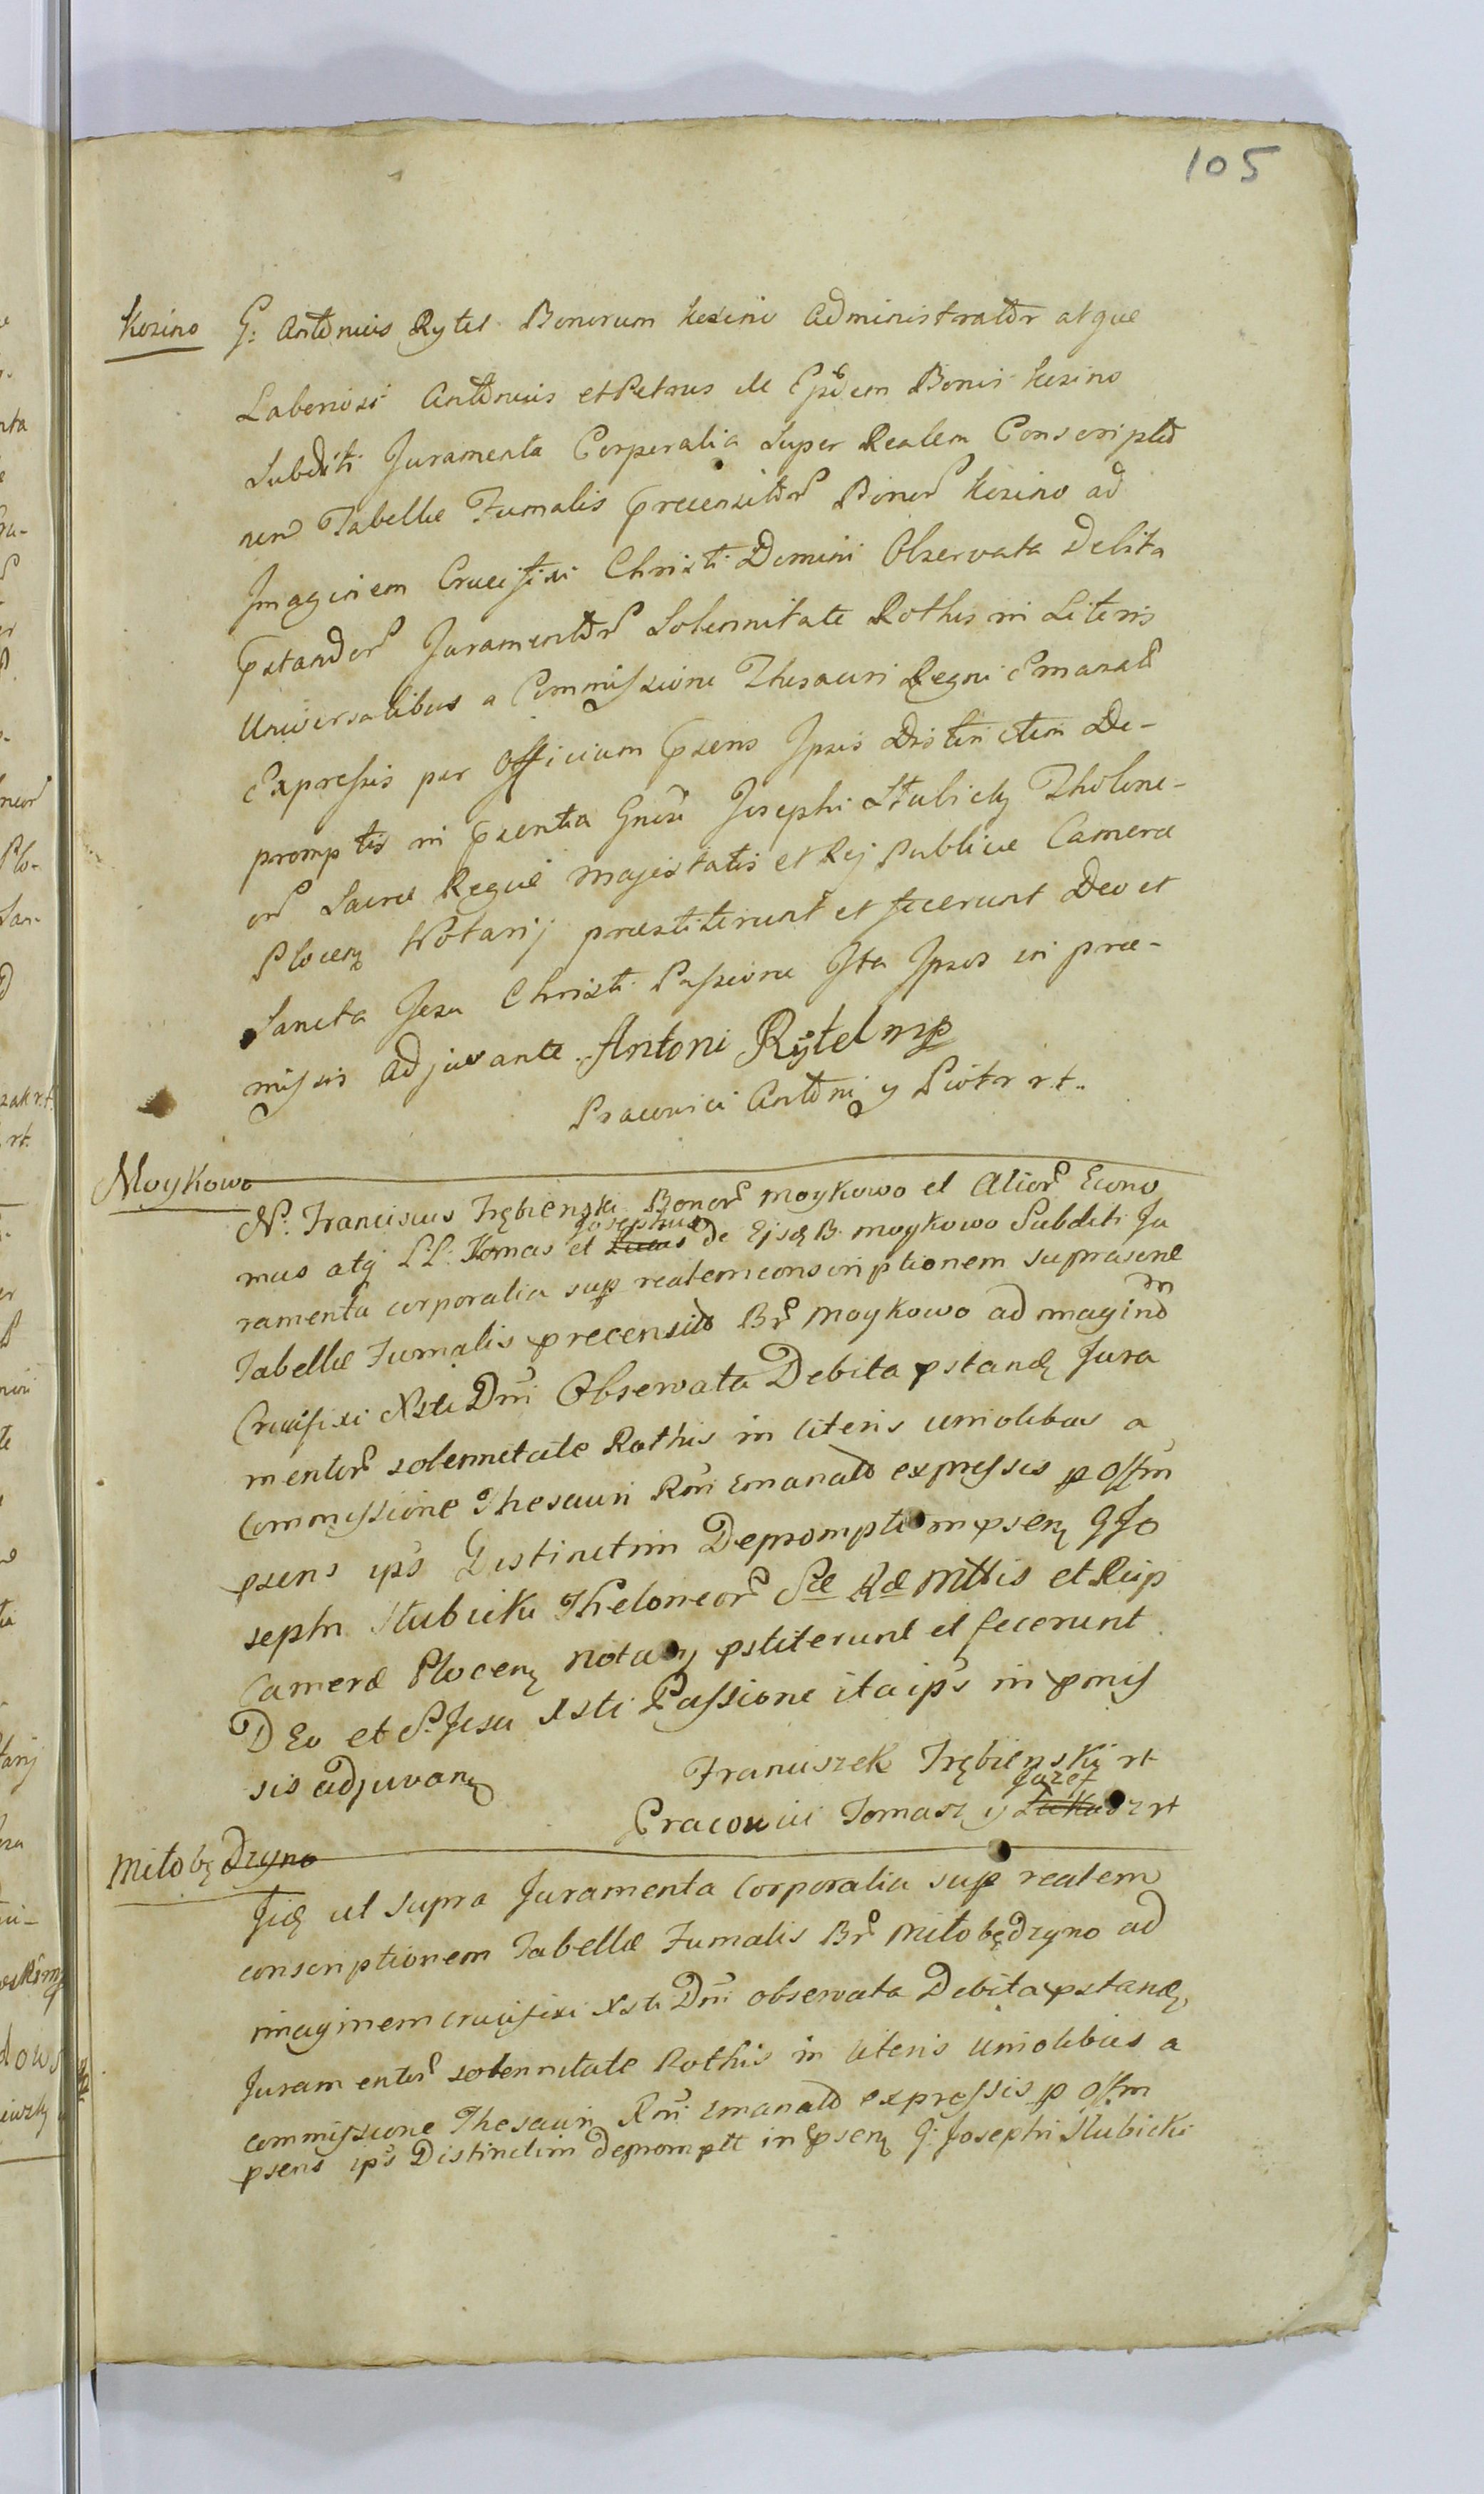 105
Kozino G: Antonius Rytel Bonorum Kozino Administrator atque
Laboriosi Antonius et Petrus de Ejsdem Bonis Kozino
Subditi Juramenta Corporalia Super Realem Conscriptio
nem Tabellæ Fumalis præcensitor Bonor Kozino ad
Imaginem Crucifixi Christi Domini Observata Debita
præstandor Juramentor Solennitate Rothis in Literis
Universalibus a Commissione Thesauri Regni Emanat
Expressis per Officium præsens Ipsis Distinctim De-
promptis in præsentia Gnosi Josephi Słubicky Tholone-
or Sacræ Regiæ Majestatis et Rej Publicæ Cameræ
Plocen Notarij præstiterunt et fecerunt Deo et
Sancta Jesu Christi Passione Ita Ipsos in præ-
missis adjuvante. Antoni Rytel mp
Pracowici Antoni y Piotr r.t.
Moykowo
N. Franciscus Trębienski Bonor Moykowo et Alior Econo
mus atq L.L. Tomas et Josephus Lucas de Ejsd B. Moykowo Subditi Ju
ramenta corporalia sup realem conscriptionem suprascrie
Tabellæ Fumalis precensito Br Moykowo ad imagind
Crucifixi Xsti Dni Observata Debita pstand Jura
mentor solennitate Rothis in literis uniolibus a
Commissione Thesauri Rni Emanato expressis p Offm
psens ips Distinctim Depromptis in psen G Jo
sephi Słubicki Theloneor Sæ Ræ Mttis et Reip
Cameræ Plocen Notarij pstiterunt et fecerunt
DEo et S. Jesu Xsti Passione ita ips in pmis
sis adjuvan
Franciszek Trębienski rt
Pracowici Tomasz y Jozef Łukasz rt
Miłobędzyno
Jid ut supra Juramenta Corporalia sup realem
conscriptionem Tabellæ Fumalis Br Miłobędzyno ad
imaginem crucifixi Xsti Dni observata Debita pstand,
Juramentor solennitate Rothis in literis uniolibus a
commissione Thesauri Rni Emanato expressis p Offm
psens ips Distinctim deprompt in psen G. Josephi Słubicki